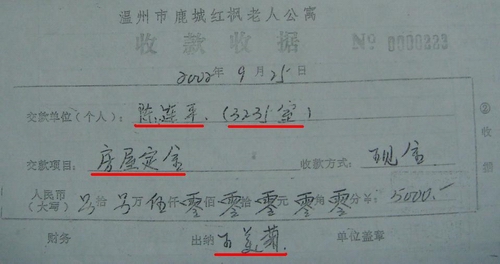 温州市鹿城红枫老人公寓
收款收据 № 0000223
2002年9月25日
交款单位(个人): 陈莲平.(323#室)
交款项目: 房屋定金 收款方式: 现金
人民币(大写) 拾 万伍仟零佰零拾零元零角零分 ¥: 5000.-
财务 出纳 单位盖章
②收据